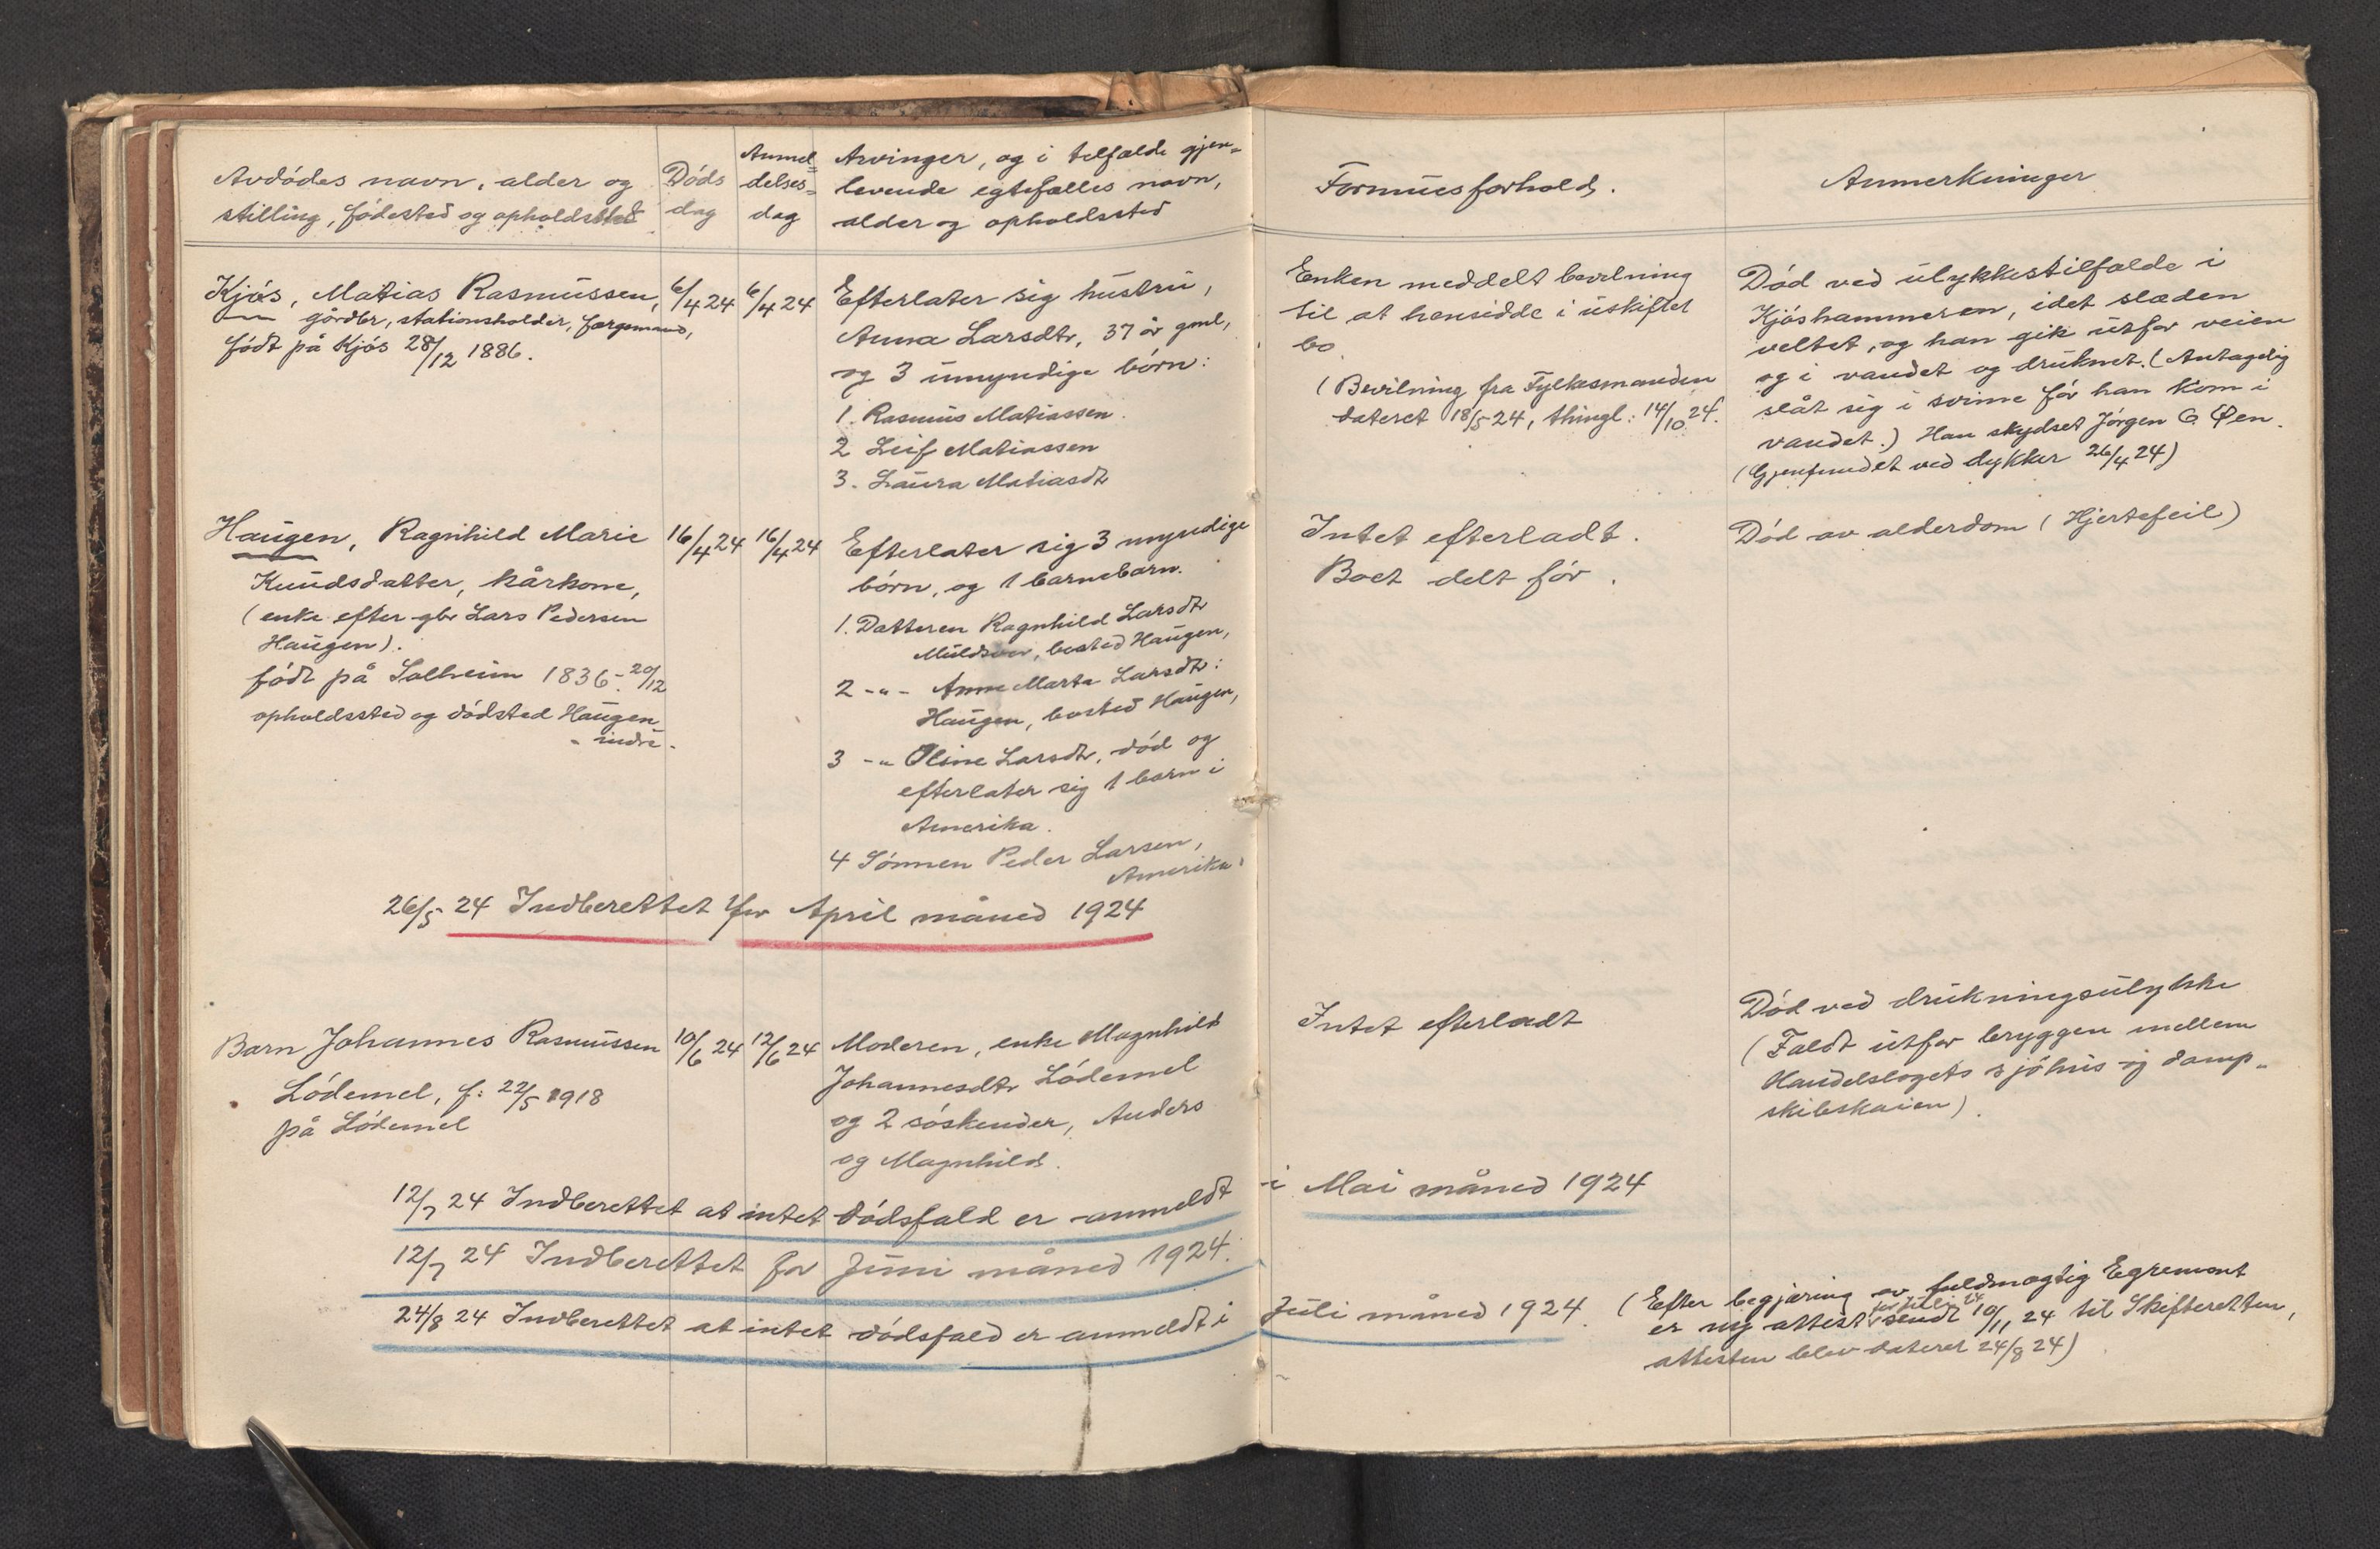 Avdódes navn, alder og
stilling, fódested og opholdssted
Dóds
dag
Anmel=
delses=
dag
Arvinger, og i tilfælde gjen=
levende egtefælles navn,
alder og opholdssted
Formuesforhold.
Anmerkninger
Kjós, Matias Rasmussen,
gårdbr, stationsholder, færgemand,
fódt på Kjós 28/12 1886.
6/4 24
6/4 24
Efterlater sig hustru,
Anna Larsdtr, 37 år gml,
og 3 umyndige bórn:
1. Rasmus Matiassen.
2 Leif Matiassen
3. Laura Matiasdtr
Enken meddelt bevilning
til at hensidde i uskiftet
bo.
(Bevilning fra Fylkesmanden
dateret 18/5 24, thingl: 14/10 24.
Dód ved ulykkestilfælde i
Kjóshammeren, idet slæden
veltet, og han gik utfor veien
og i vandet og druknet. (Antagelig
slåt sig i svime fór han kom i
vandet.) Han skydset Jórgen C. Øen.
(Gjenfundet ved dykker 26/4 24)
Haugen, Ragnhild Marie
Knudsdatter, kårkone,
(enke efter gbr Lars Pedersen
Haugen).
fódt på Solheim 1836 - 20/12
opholdssted og dódsted Haugen
- indre -
16/4 24
16/4 24
Efterlater sig 3 myndige
bórn, og 1 barnebarn.
1. Datteren Ragnhild Larsdtr
Muldsvor, bosted Haugen,
2 -"- Anne Marta Larsdtr:
Haugen, bosted Haugen,
3 -" Oline Larsdtr, dód og
efterlater sig 1 barn i
Amerika.
4 Sónnen Peder Larsen,
Amerika.
Intet efterladt.
Boet delt fór.
Dód av alderdom (Hjertefeil)
26/5 24 Indberettet for April måned 1924
Barn Johannes Rasmussen
Lódemel, f: 22/5 1918
på Lódemel
10/6 24
12/6 24
Moderen, enke Magnhild
Johannesdtr Lódemel
og 2 sóskender, Anders
og Magnhild.
Intet efterladt
Dód ved drukningsulykke
(Faldt utfor bryggen mellem
Handelslagets sjóhus og damp-
skibskaien).
12/7 24 Indberettet at intet dódsfald er anmeldt i Mai måned 1924
12/7 24 Indberettet for Juni måned 1924.
24/8 24 Indberettet at intet dódsfald er anmeldt i Juli måned 1924.
(Efter begjæring av fuldmægtig Egremont
for juli 24
er ny attest sendt 10/11 24 til Skifteretten,
attesten blev dateret 24/8 24)